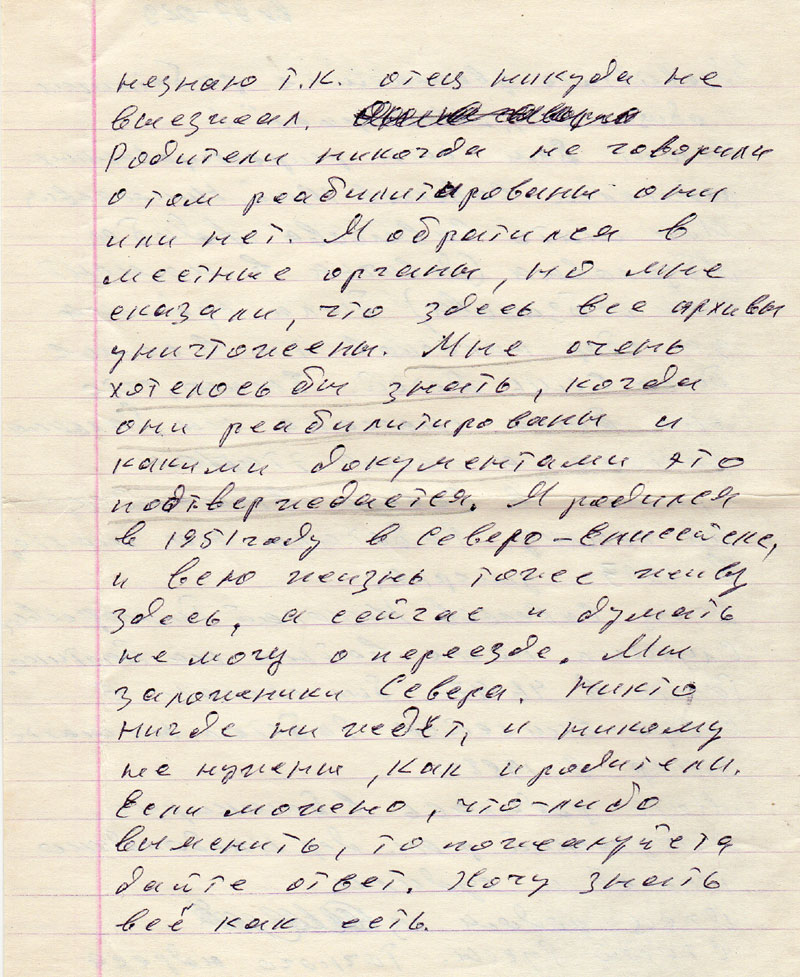 незнаю т.к. отец никуда не
выезжал.
Родители никогда не говорили
о том реабилитированы они
или нет. Я обратился в
местные органы, но мне
сказали, что здесь все архивы
уничтожены. Мне очень
хотелось бы знать, когда
они реабилитированы и
какими документами это
подтверждается. Я родился
в 1951 году в Северо-Енисейске,
и всю жизнь тоже живу
здесь, а сейчас и думать
не могу о переезде. Мы
заложники Севера. Никто
нигде ни ждёт, и никому
не нужены, как и родители.
Если можено, что-либо
выяснить, то пожалуйста
дайте ответ. Хочу знать
всё как есть.